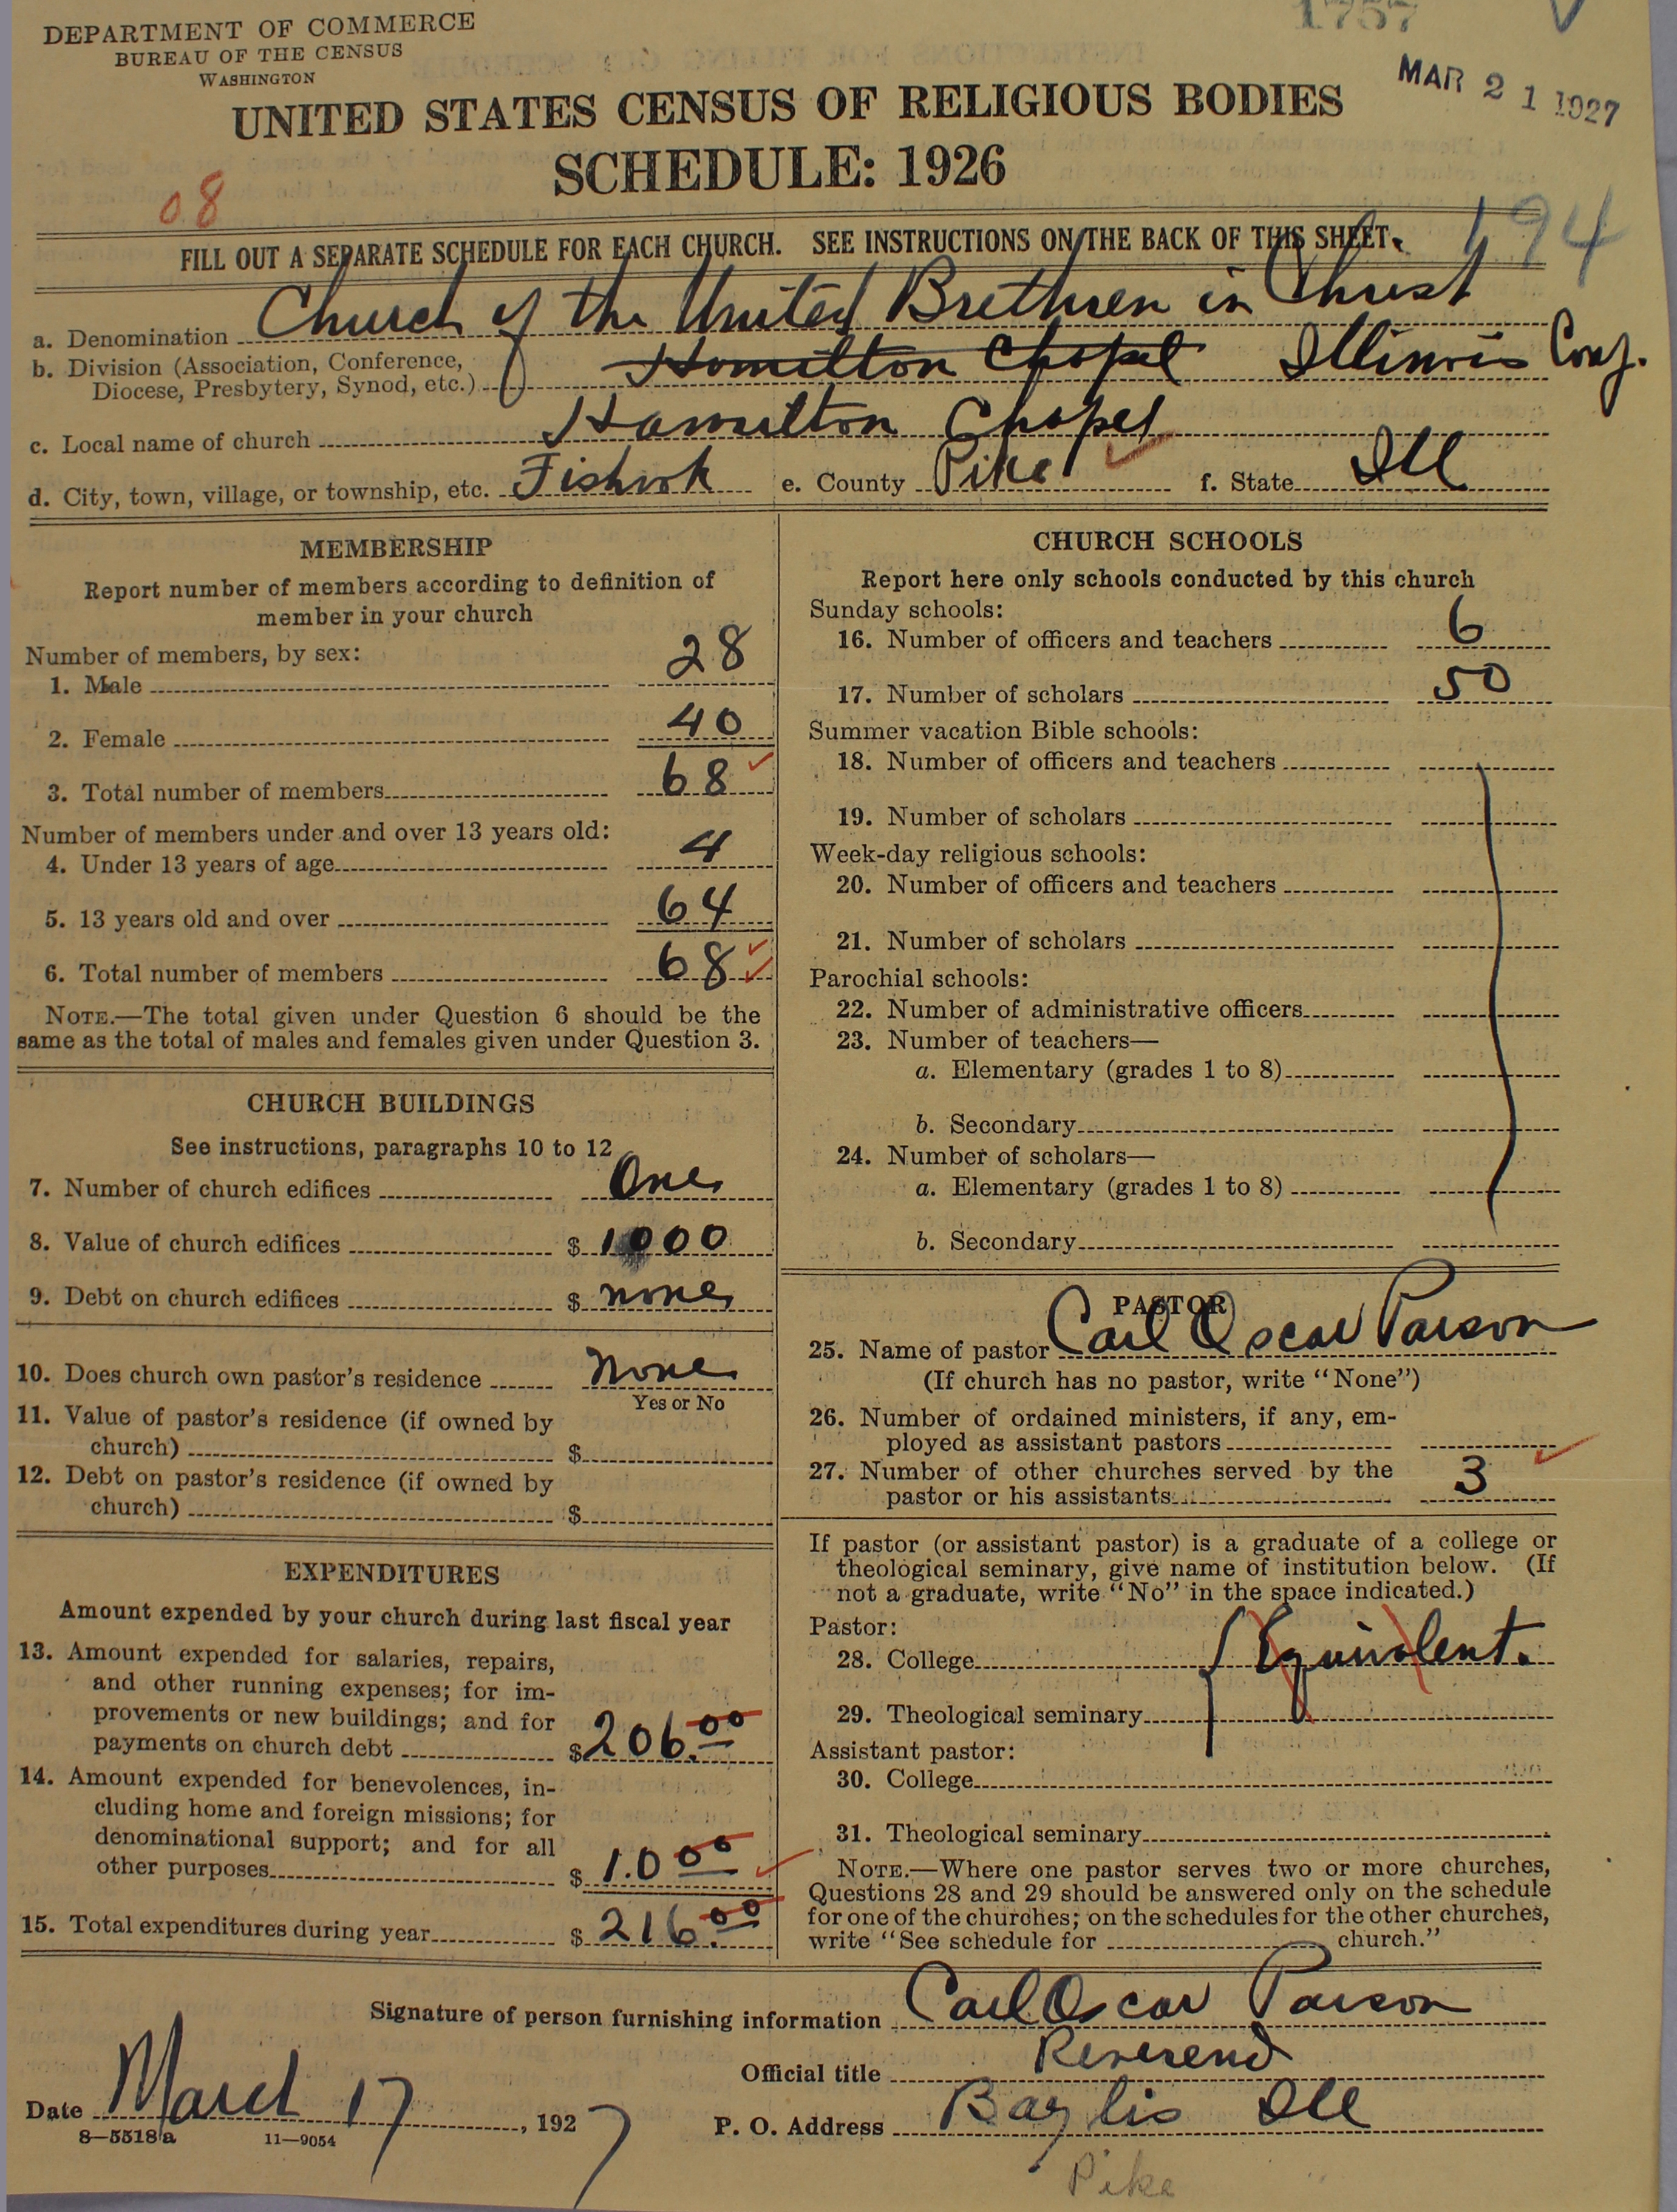 DEPARTMENT OF COMMERCE
BUREAU OF THE CENSUS
WASHINGTON
1757
MAR 21 1927
UNITED STATES CENSUS OF RELIGIOUS BODIES
SCHEDULE: 1926
08
194
FILL OUT A SEPARATE SCHEDULE FOR EACH CHURCH. SEE INSTRUCTIONS ON THE BACK OF THIS SHEET.
a. Denomination Church of the United Brethren in Christ
b. Division (Association, Conference, Diocese, Presbytery, Synod, etc.) Hamilton Chapel Illinois Conf.
c. Local name of church Hamilton Chapel
d. City, town, village, or township, etc. Fishook e. County Pike f. State Ill
MEMBERSHIP
Report number of members according to definition of
member in your church
Number of members, by sex:
1. Male 28
2. Female 40
3. Total number of members 68
Number of members under and over 13 years old:
4. Under 13 years of age 4
5. 13 years old and over 64
6. Total number of members 68
NOTE.—The total given under Question 6 should be the
same as the total of males and females given under Question 3.
CHURCH BUILDINGS
See instructions, paragraphs 10 to 12
7. Number of church edifices One
8. Value of church edifices $ 1000
9. Debt on church edifices $ none
10. Does church own pastor's residence none
Yes or No
11. Value of pastor's residence (if owned by
church) $
12. Debt on pastor's residence (if owned by
church) $
EXPENDITURES
Amount expended by your church during last fiscal year
13. Amount expended for salaries, repairs,
and other running expenses; for im-
provements or new buildings; and for
payments on church debt $ 206.00
14. Amount expended for benevolences, in-
cluding home and foreign missions; for
denominational support; and for all
other purposes $ 1.0 00
15. Total expenditures during year $ 216.00
CHURCH SCHOOLS
Report here only schools conducted by this church
Sunday schools:
16. Number of officers and teachers 6
17. Number of scholars 50
Summer vacation Bible schools:
18. Number of officers and teachers
19. Number of scholars
Week-day religious schools:
20. Number of officers and teachers
21. Number of scholars
Parochial schools:
22. Number of administrative officers
23. Number of teachers—
a. Elementary (grades 1 to 8)
b. Secondary
24. Number of scholars—
a. Elementary (grades 1 to 8)
b. Secondary
PASTOR
25. Name of pastor Carl Oscar Parson
(If church has no pastor, write "None")
26. Number of ordained ministers, if any, em-
ployed as assistant pastors
27. Number of other churches served by the
pastor or his assistants 3
If pastor (or assistant pastor) is a graduate of a college or
theological seminary, give name of institution below. (If
not a graduate, write "No" in the space indicated.)
Pastor:
28. College Equivalent.
29. Theological seminary
Assistant pastor:
30. College
31. Theological seminary
NOTE.—Where one pastor serves two or more churches,
Questions 28 and 29 should be answered only on the schedule
for one of the churches; on the schedules for the other churches,
write "See schedule for church."
Signature of person furnishing information Carl Oscar Parson
Official title Reverend
Date March 17, 1927 P. O. Address Baylis Ill
8—5518a 11—9054
Pike